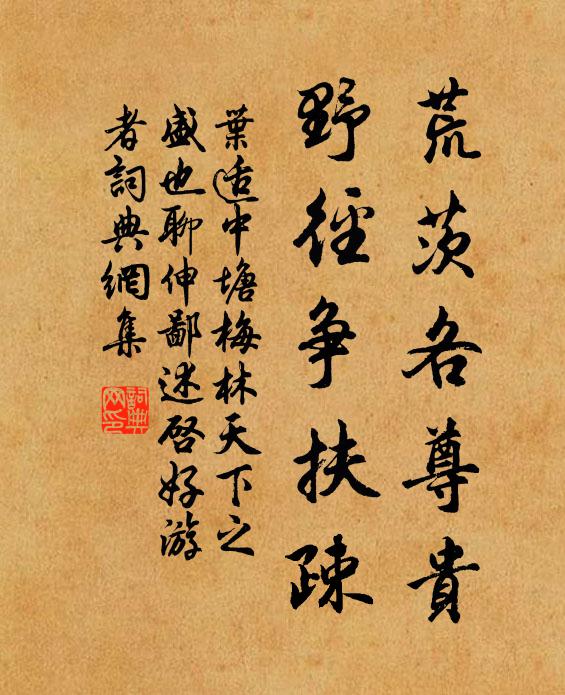 荒茨各尊貴
野徑争扶疎
葉适中塘梅林天下之
盛也聊伸鄙述啓好游
者詞典網集
詞典网印